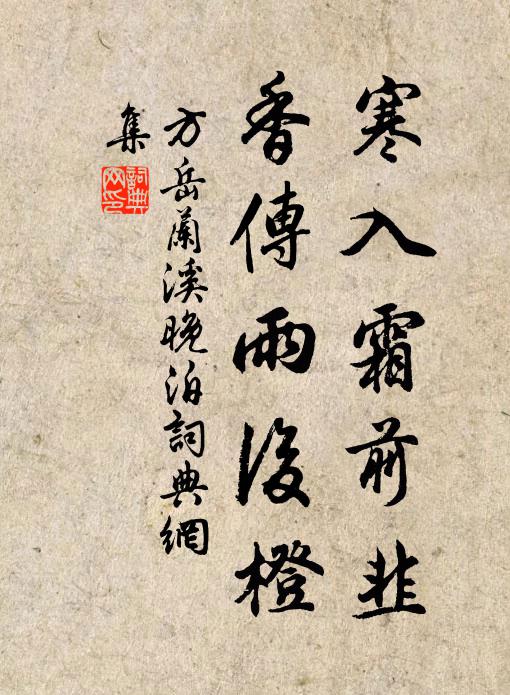 寒入霜前韭
香傳雨後橙
方岳蘭溪晚泊詞典網
集
詞典
网印